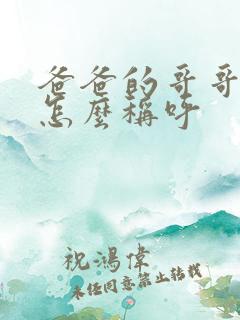 爸爸的哥哥
怎麼稱呼
祝鴻偉
未经同意禁止转载